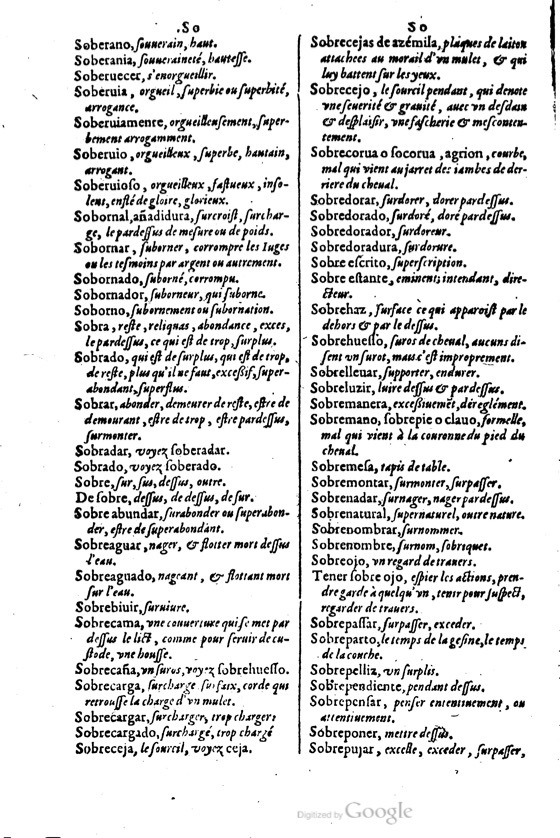 .So
Soberano, souuerain, haut.
Soberania, souueraineté, hautesse.
Soberuecer, s'enorgueillir.
Soberuia, orgueil, superbie ou superbité,
arrogance.
Soberuiamente, orgueilleusement, super-
bement arrogamment.
Soberuio, orgueilleux, superbe, hautain,
arrogant.
Soberuioso, orgueilleux, fastueux, inso-
lent, enflé de gloire, glorieux.
Sobornal, añadidura, surcroist, surchar-
ge, le pardessus de mesure ou de poids.
Sobornar, suborner, corrompre les Iuges
ou les tesmoins par argent ou autrement.
Sobornado, suborné, corrompu.
Sobornador, suborneur, qui suborne.
Soborno, subornement ou subornation.
Sobra, reste, reliquas, abondance, exces,
le pardessus, ce qui est de trop, surplus.
Sobrado, qui est de surplus, qui est de trop,
de reste, plus qu'il ne faut, excessif, super-
abondant, superflus.
Sobrar, abonder, demeurer de reste, estre de
demourant, estre de trop, estre pardessus,
surmonter.
Sobradar, voyez soberadar.
Sobrado, voyez soberado.
Sobre, sur, sus, dessus, outre.
De sobre, dessus, de dessus, de sur.
Sobre abundar, surabonder ou superabon-
der, estre de superabondant.
Sobreaguar, nager, & flotter mort dessus
l'eau.
Sobreaguado, nageant, & flottant mort
sur l'eau.
Sobrebiuir, suruiure.
Sobrecama, vne couuerture qui se met par
dessus le lict, comme pour seruir de cu-
stode, vne housse.
Sobrecaña, vn suros, voyez sobrehuesso.
Sobrecarga, surcharge surfaix, corde qui
retrousse la charge d'vn mulet.
Sobrecargar, surcharger, trop charger:
Sobrecargado, surchargé, trop chargé
Sobreceja, le sourcil, voyez ceja.
So
Sobrecejas de azémila, plaques de laiton
attachees au morail d'vn mulet, & qui
luy battent sur les yeux.
Sobrecejo, le sourcil pendant, qui denote
vne seuerité & grauité, auec vn desdain
& desplaisir, vne fascherie & mesconten-
tement.
Sobrecorua o socorua, agrion, courbe,
mal qui vient au jarret des iambes de der-
riere du cheual.
Sobredorar, surdorer, dorer pardessus.
Sobredorado, surdoré, doré pardessus.
Sobredorador, surdoreur.
Sobredoradura, surdorure.
Sobre escrito, superscription.
Sobre estante, eminent; intendant, dire-
cteur.
Sobrehaz, surface ce qui apparoist par le
dehors & par le dessus.
Sobrehuesso, suros de cheual, aucuns di-
sent vn surot, mais c'est improprement.
Sobrelleuar, supporter, endurer.
Sobreluzir, luire dessus & pardessus.
Sobremanera, excessiuement, déreglément.
Sobremano, sobrepie o clauo, formelle,
mal qui vient à la couronne du pied du
cheual.
Sobremesa, tapis de table.
Sobremontar, surmonter, surpasser.
Sobrenadar, surnager, nager pardessus.
Sobrenatural, supernaturel, outre nature.
Sobrenombrar, surnommer.
Sobrenombre, surnom, sobriquet.
Sobreojo, vn regard de trauers.
Tener sobre ojo, espier les actions, pren-
dre garde à quelqu'vn, tenir pour suspect,
regarder de trauers.
Sobrepassar, surpasser, exceder.
Sobreparto, le temps de la gesine, le temps
de la couche.
Sobrepelliz, vn surplis.
Sobrependiente, pendant dessus.
Sobrepensar, penser ententinement, ou
attentinement.
Sobreponer, mettre dessus.
Sobrepujar, excelle, exceder, surpasser,
Digitized by Google